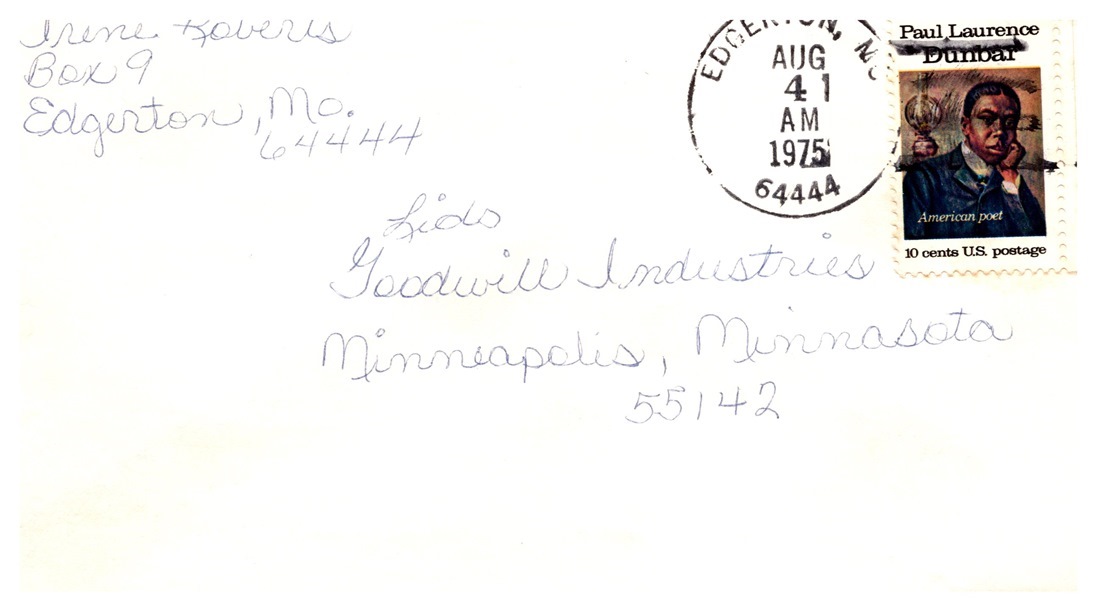 Irene Roberts
Box 9
Edgerton, Mo.
64444
EDGERTON, MO
AUG
41
AM
1975
64444
Paul Laurence
Dunbar
American poet
10 cents U.S. postage
Lids
Goodwill Industries
Minneapolis, Minnasota
55142